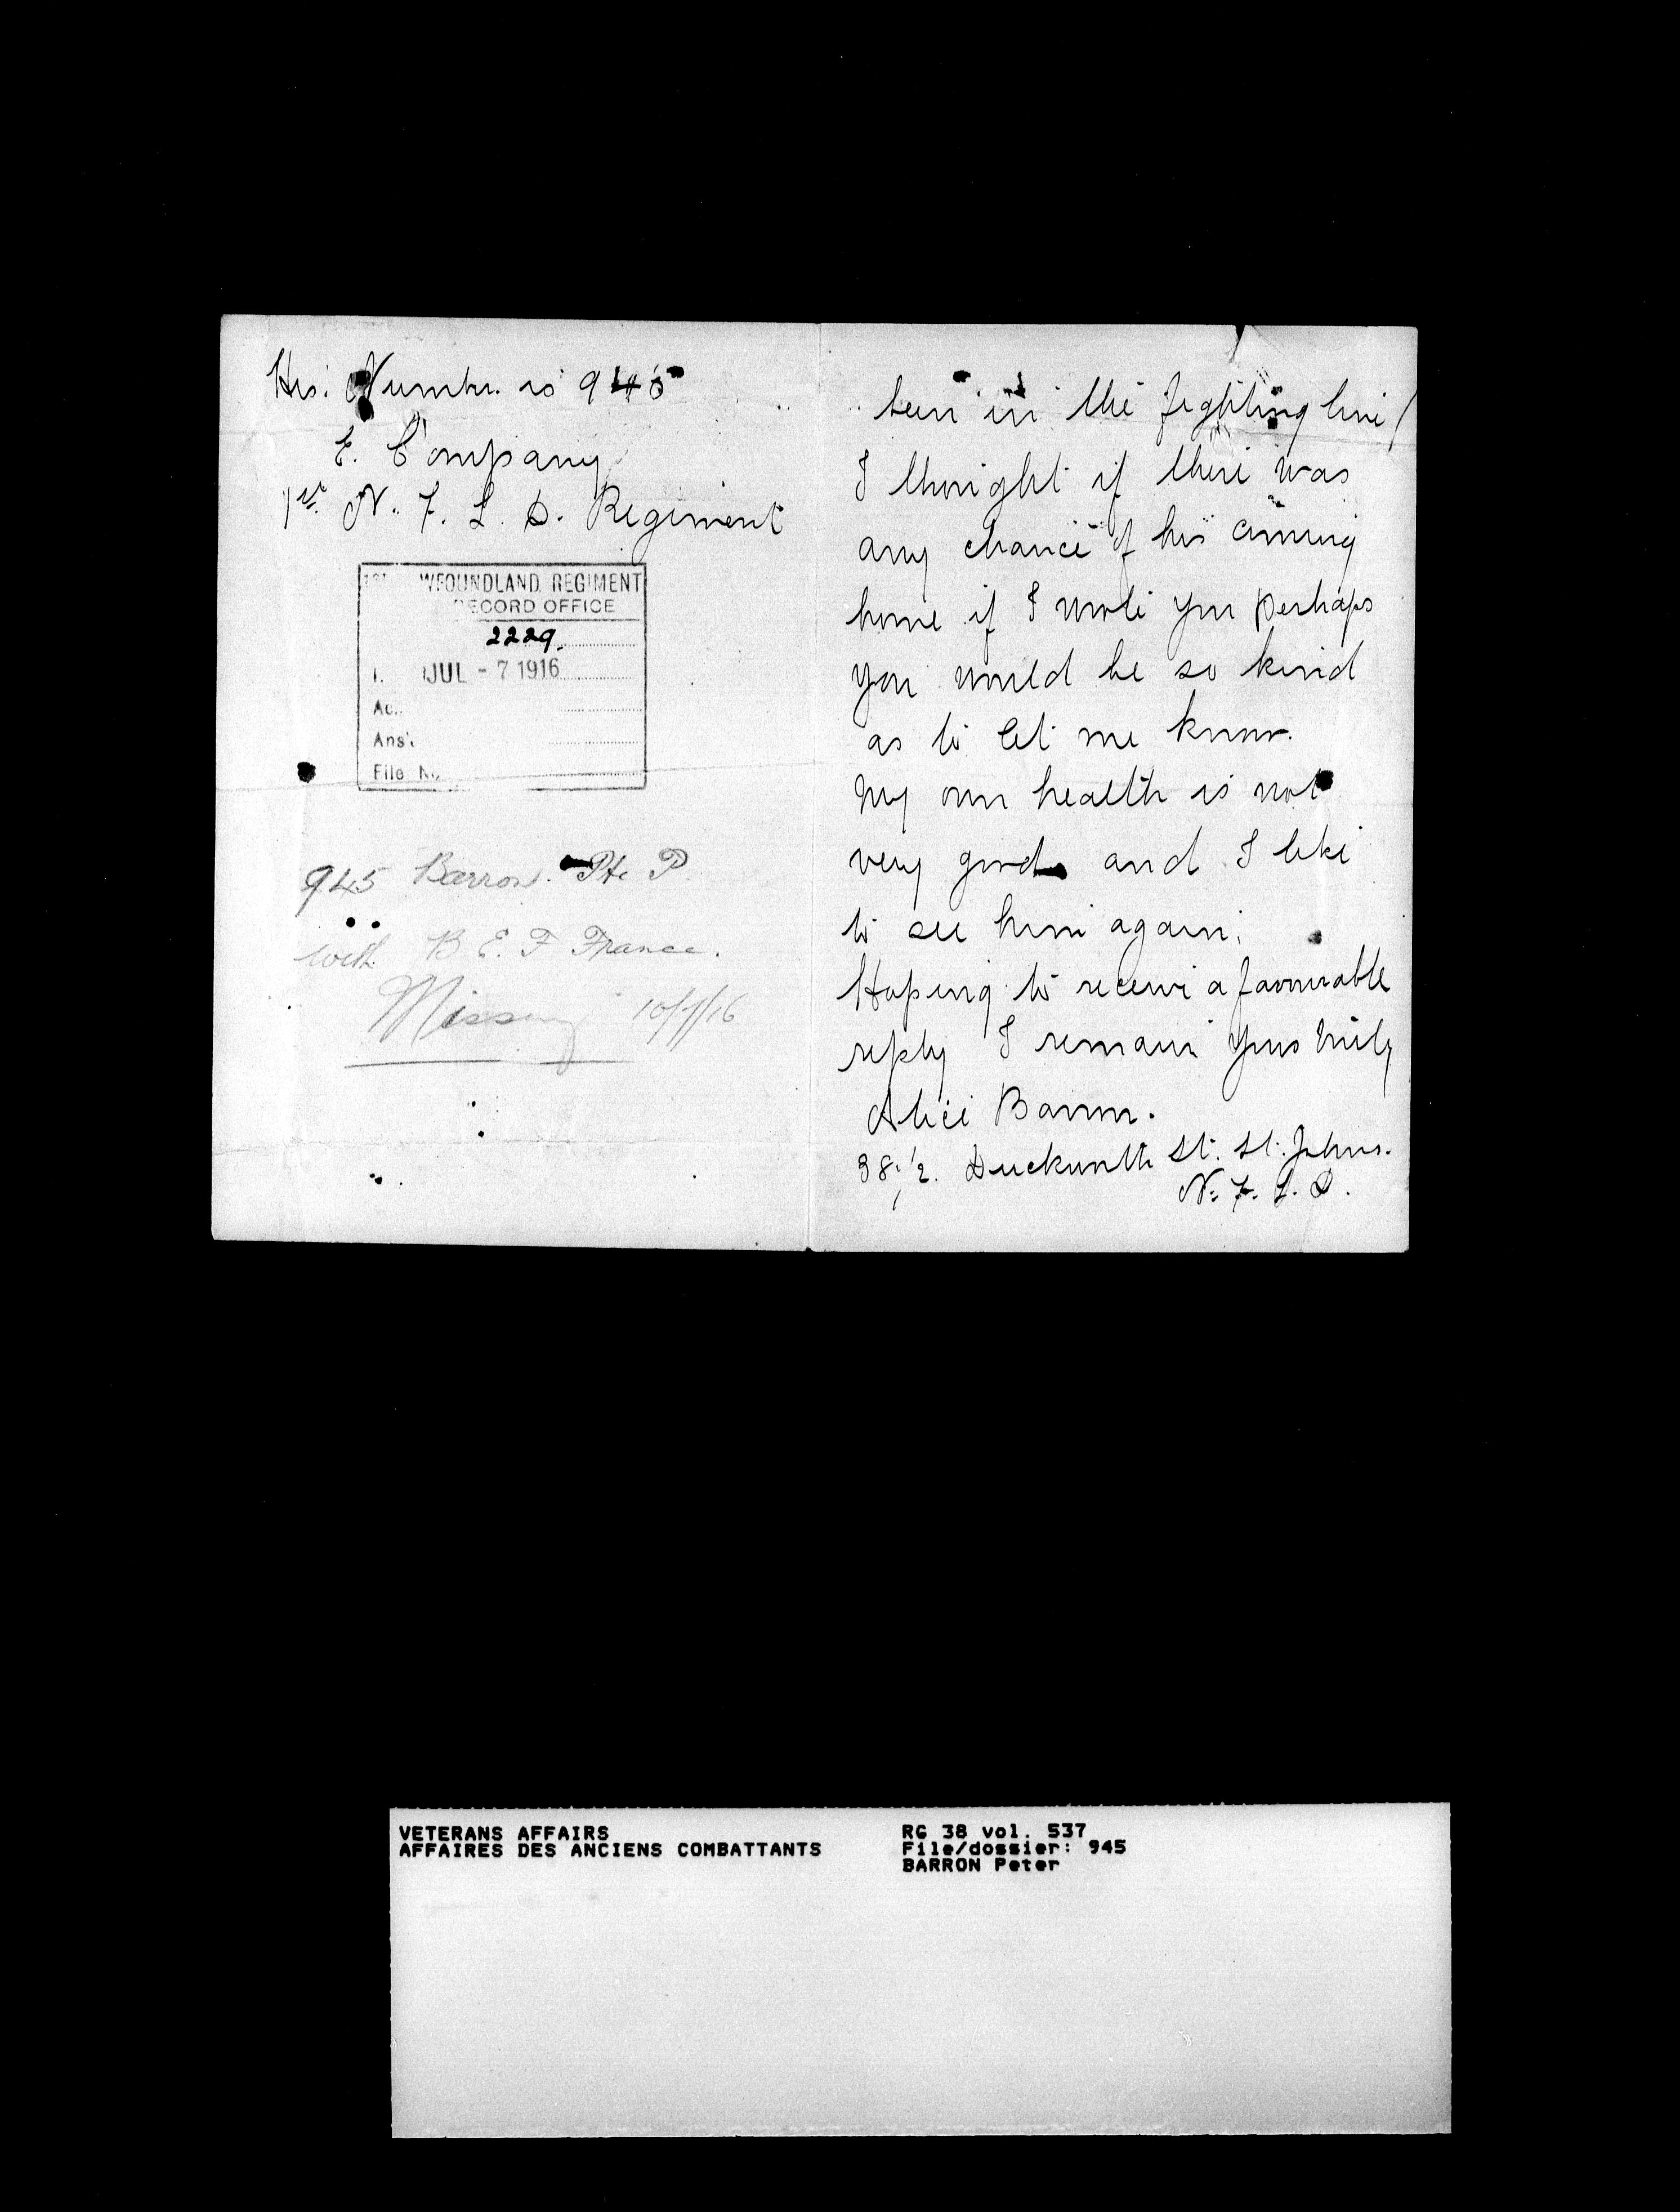 His. Number. is 945
E. Company
1st. N. F. L. D. Regiment
WFOUNDLAND REGIMENT
RECORD OFFICE
2229.
JUL - 7 1916
Ans'
File No
945 Barron. Pte P.
with B. E. F France.
Missing 10/7/16
been in the fighting line
I thought if there was
any chance of his coming
home if I wrote you perhaps
you would be so kind
as to let me know.
My own health is not
very good and I like
to see him again.
Hoping to receive a favourable
reply I remain yours truly
Alice Barron.
38 1/2. Duckworth St. St. Johns.
N. F. L. D.
VETERANS AFFAIRS
AFFAIRES DES ANCIENS COMBATTANTS
RG 38 vol. 537
File/dossier: 945
BARRON Peter